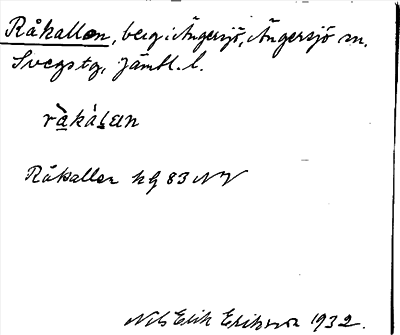 Råkallen, berg i Ängersjö, Ängersjö sn.
Svegs tg, Jämtl. l.
Råkallen kg 83 NV
Nils Erik Eriksson 1932.